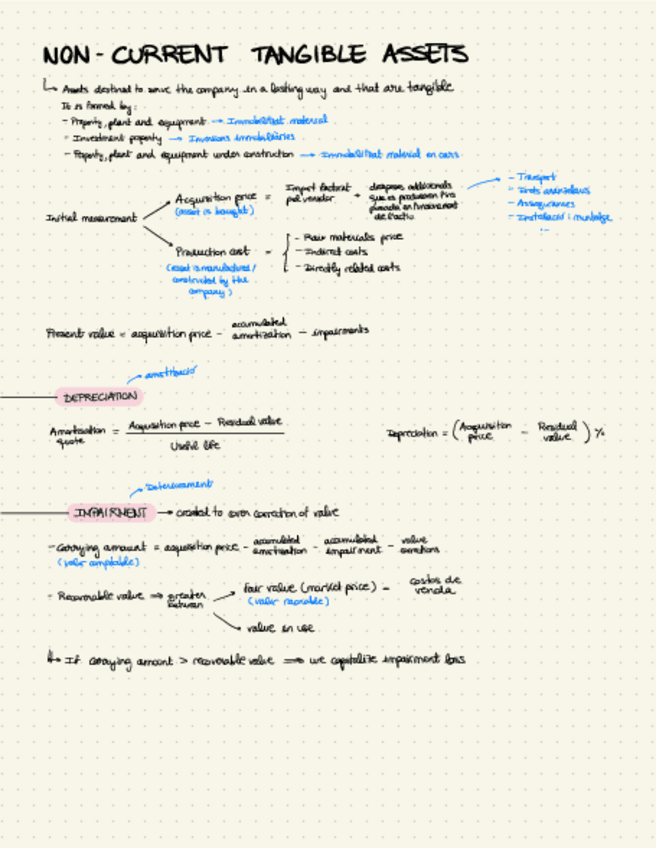 NON-CURRENT TANGIBLE ASSETS
↳ Assets destined to serve the company in a lasting way and that are tangible
It is formed by:
- Property, plant and equipment → Immobilitzat material
- Investment property → Inversions immobiliàries
- Property, plant and equipment under construction → Immobilitzat material en curs
Initial measurement
Acquisition price = Import facturat pel venedor + despeses addicionals que es produeixin fins
(asset is bought)
de l'actiu
- Transport
- Drets aranzelaris
- Assegurances
- Instal·lació i muntatge
...
Production cost =
(asset is manufactured/
constructed by the
company)
- Raw materials price
- Indirect costs
- Directly related costs
Present value = acquisition price - accumulated amortization - impairments
amortització
DEPRECIATION
Amortization quote = Acquisition price - Residual value
Useful life
Depreciation = (Acquisition price - Residual value) %
Deteriorament
IMPAIRMENT → created to cover correction of value
- Carrying amount = acquisition price - accumulated amortization - accumulated impairment - value corrections
(valor comptable)
- Recoverable value ⇒ greater between
fair value (market price) - costos de venda
(valor raonable)
value in use
↳ If carrying amount > recoverable value ⇒ we capitalize impairment loss